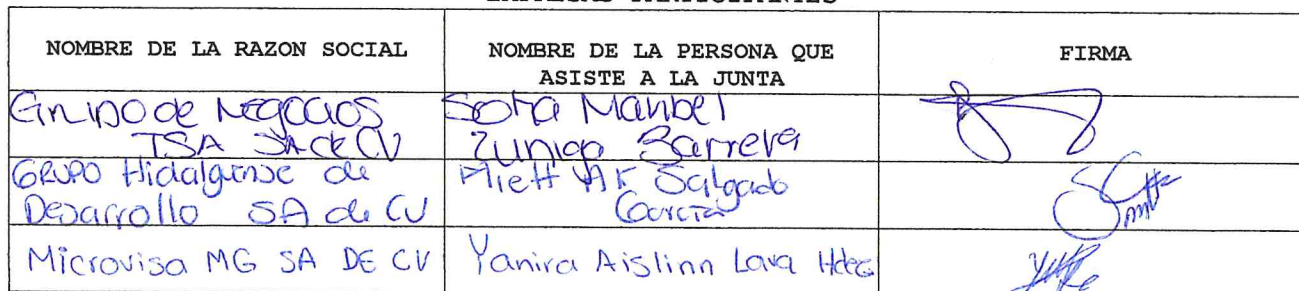 NOMBRE DE LA RAZON SOCIAL
NOMBRE DE LA PERSONA QUE
ASISTE A LA JUNTA
FIRMA
Grupo de Negocios
TSA SA de CV
Sofia Maribel
Zuniga Barrera
GRUPO Hidalguense de
Desarrollo SA de CV
Salgado
García
Microvisa MG SA DE CV
Yanira Aislinn Lara Hdez